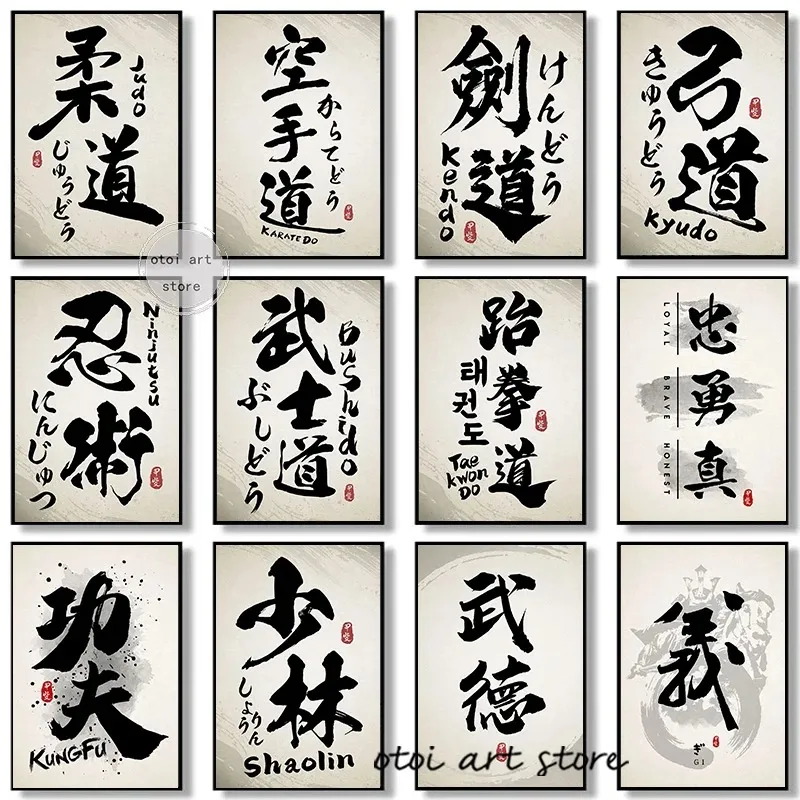 柔道
Judo
じゅうどう
空手道
からてどう
KARATE DO
劍道
けんどう
Kendo
弓道
きゅうどう
Kyudo
otoi art
store
忍術
Ninjutsu
にんじゅつ
武士道
Bushido
ぶしどう
跆拳道
태권도
Tae
kwon
DO
忠
LOYAL
勇
BRAVE
真
HONEST
功夫
KUNGFU
少林
しょうりん
Shaolin
武德
義
ぎ
GI
otoi art store